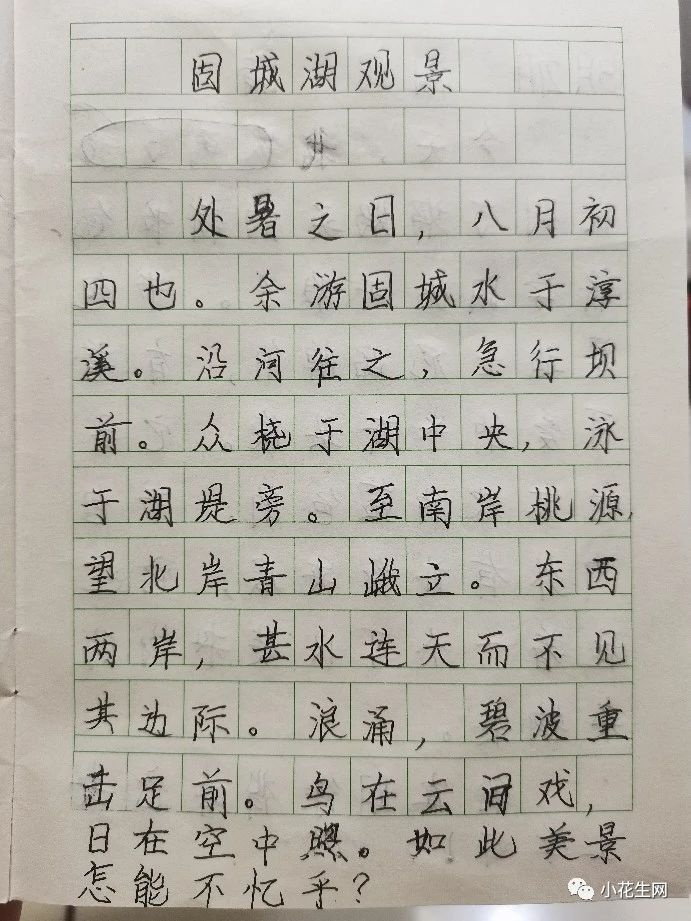 固城湖观景
处暑之日，八月初
四也。余游固城水于淳
溪。沿河往之，急行坝
前。众桡于湖中央，泳
于湖堤旁。至南岸桃源，
望北岸青山峨立。东西
两岸，甚水连天而不见
其边际。浪涌，碧波重
击足前。鸟在云间戏，
日在空中照。如此美景
怎能不忆乎？
小花生网